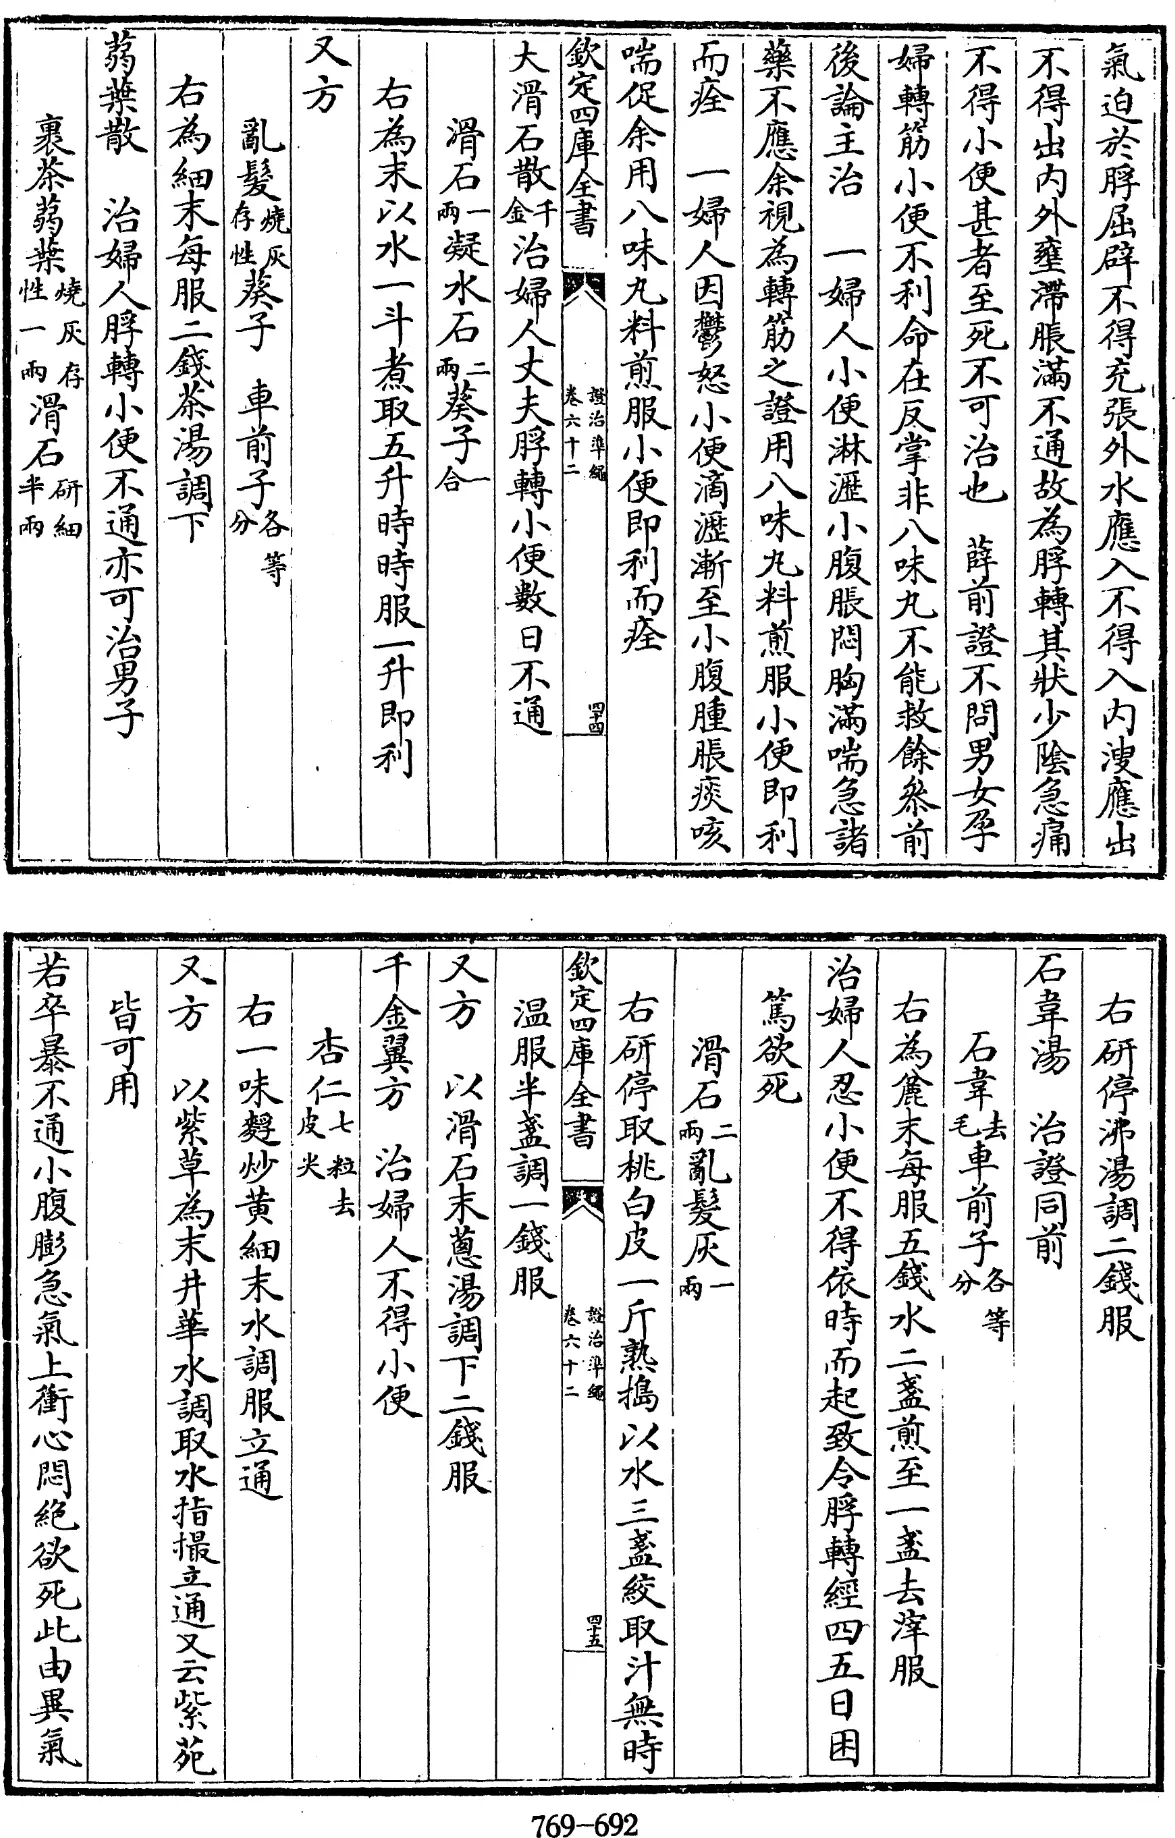 氣迫於脬屈辟不得充張外水應入不得入内溲應出
不得出内外壅滯脹滿不通故為脬轉其狀少隂急痛
不得小便甚者至死不可治也　薛前證不問男女孕
婦轉筋小便不利命在反掌非八味丸不能救餘叅前
後論主治　一婦人小便淋瀝小腹脹悶胸滿喘急諸
藥不應余視為轉筋之證用八味丸料煎服小便即利
而痊　一婦人因鬱怒小便滴瀝漸至小腹腫脹痰咳
喘促余用八味丸料煎服小便即利而痊
欽定四庫全書　證治凖繩　卷六十二　四十四
大滑石散千金　治婦人丈夫脬轉小便數日不通
滑石一兩凝水石二兩葵子一合
右為末以水一斗煮取五升時時服一升即利
又方
亂髮燒灰存性葵子　車前子各等分
右為細末每服二錢茶湯調下
蒻葉散　治婦人脬轉小便不通亦可治男子
裹茶蒻葉燒灰存性一兩滑石研細半兩
右研停沸湯調二錢服
石韋湯　治證同前
石韋去毛車前子各等分
右為麄末每服五錢水二盞煎至一盞去滓服
治婦人忍小便不得依時而起致令脬轉經四五日困
篤欲死
滑石二兩亂髮灰一兩
右研停取桃白皮一斤熟搗以水三盞絞取汁無時
欽定四庫全書　證治凖繩　卷六十二　四十五
温服半盞調一錢服
又方　以滑石末蔥湯調下二錢服
千金翼方　治婦人不得小便
杏仁七粒去皮尖
右一味麩炒黄細末水調服立通
又方　以紫草為末井華水調取水指撮立通又云紫菀
皆可用
若卒暴不通小腹膨急氣上衝心悶絶欲死此由異氣
769-692